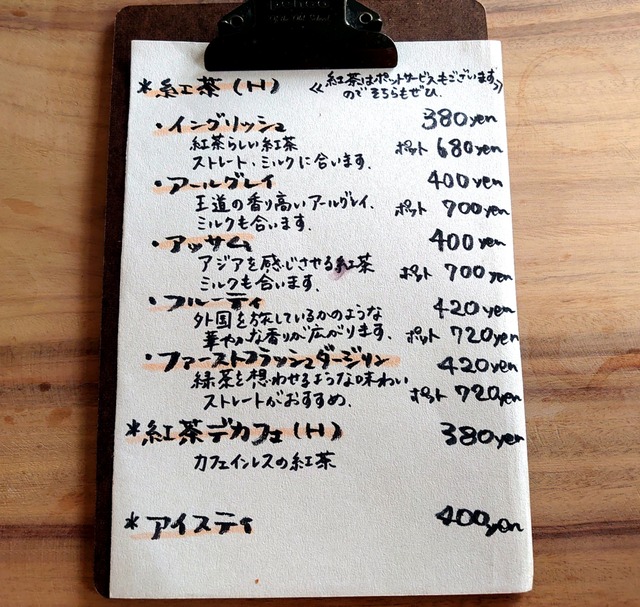 *紅茶(H)
《紅茶はポットサービスもございます
のでそちらもぜひ。》
・イングリッシュ 380yen
紅茶らしい紅茶 ポット 680yen
ストレート、ミルクに合います。
・アールグレイ 400yen
王道の香り高いアールグレイ。 ポット 700yen
ミルクも合います。
・アッサム 400yen
アジアを感じさせる紅茶 ポット 700yen
ミルクも合います。
・フルーティ 420yen
外国を旅しているかのような
華やかな香りが広がります。 ポット 720yen
・ファーストフラッシュダージリン 420yen
緑茶を想わせるような味わい ポット 720yen
ストレートがおすすめ。
*紅茶デカフェ(H) 380yen
カフェインレスの紅茶
*アイスティ 400yen